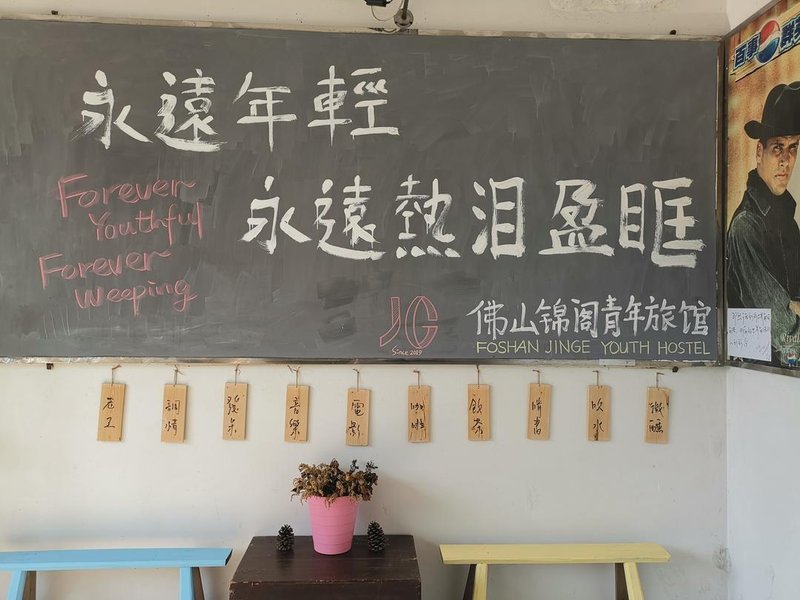 永遠年輕
永遠熱泪盈眶
Forever
Youthful
Forever
Weeping
JG
Since 2019
佛山锦阁青年旅馆
FOSHAN JINGE YOUTH HOSTEL
調情
發呆
音樂
電影
咖啡
飲茶
睛書
吹水
百事